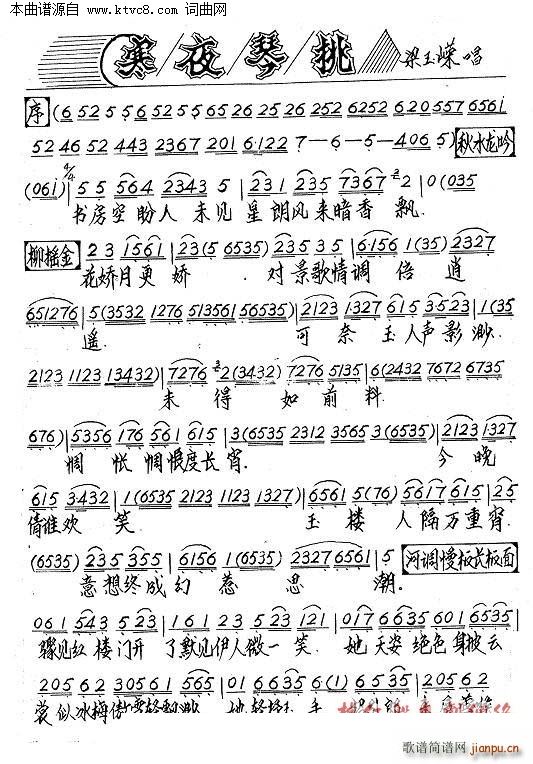 本曲谱源自 www.ktvc8.com 词曲网
寒夜琴挑 梁玉嵘唱
序 (6 52 5 5 6 52 5 5 65 26 25 26 252 6252 620 557 656i
52 46 52 443 2367 201 6·122 7-6-5-4065) 秋水龙吟
(06i) 5 5 564 2343 5 | 231 235 7367 2 | 0 (035
书房空盼人 未见星朗风来暗香飘.
柳摇金 2 3 1561 | 23 (5 6535) 235 3 5 | 6156 1 (35) 2327
花娇月更娇. 对景歌情调倍逍
651276 | 5 (3532 1276 513561 56535) | 2123 1327 615 3523 | 1 (35
遥. 可奈玉人声影渺.
2123 1123 13432) | 7276 2 (3432) 7276 5135 | 6 (2432 7672 6735
未得如前料
676) | 5356 176 561 615 | 3 (6535 2312 3565 3 (6535) | 2123 1327
惆怅惆恨度长宵. 今晚
615 3432 | 1 (6535 2123 1123 1327) | 6561 5 (76) 5617 615 | 25
倩谁欢笑. 玉楼人隔万重宵.
(6535) 235 355 | 6156 1 (6535) 2327 6561 | 5 河调慢板长板面
意想终成幻惹思潮.
061 543 5 23 | 161 23 5 23 121 | 017 6635 601 6535 |
骤见红楼门开了默见伊人微一笑. 她天姿绝色身披云
20562 3056 1 565 | 01 6635 6 (1) 6 535 | 20562
裳似冰梅傲
歌谱简谱网
jianpu.cn